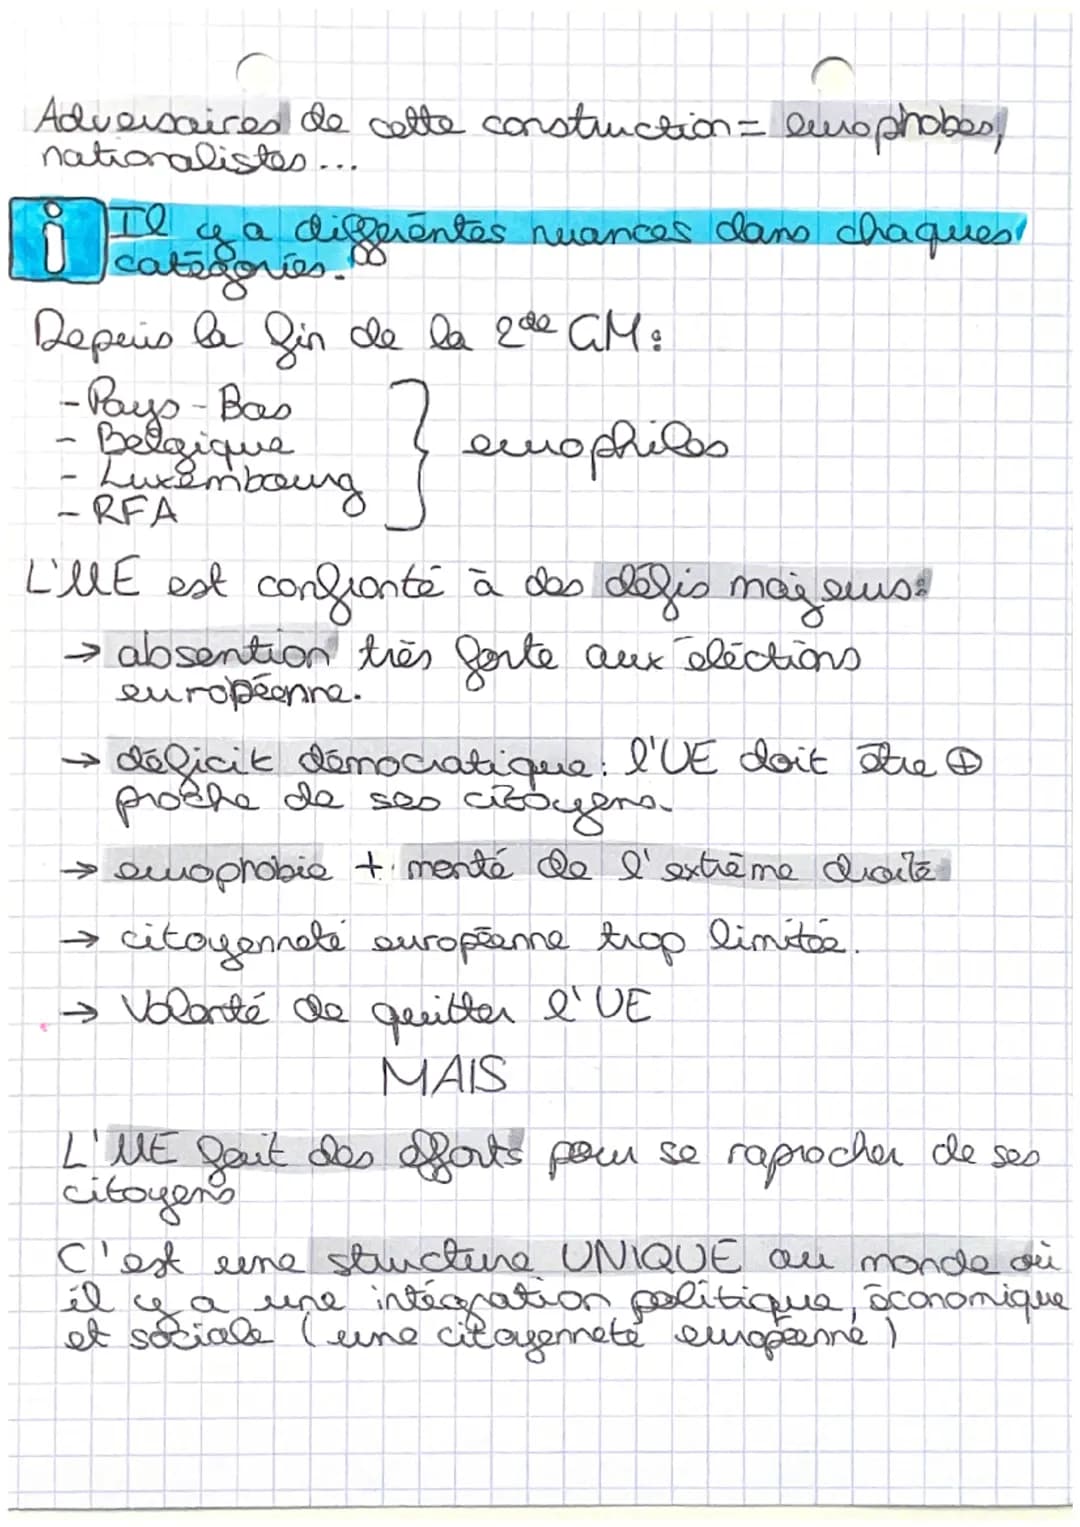 Adversaires de cette construction = europhobes,
nationalistes...
i Il y a différentes nuances dans chaques
catégories.
Depuis la fin de la 2de GM :
- Pays-Bas
- Belgique
- Luxembourg
- RFA
europhiles
L'UE est confronté à des défis majeurs:
→ absention très forte aux éléctions
européenne.
→ déficit démocratique : l'UE doit être ⊕
proche de ses citoyens.
→ europhobie + monté de l'extrême droite
→ citoyenneté européenne trop limitée.
→ Volonté de quitter l'UE
MAIS
L'UE fait des efforts pour se raprocher de ses
citoyens
C'est une structure UNIQUE au monde où
il y a une intégration politique, économique
et sociale (une citoyenneté européenne)